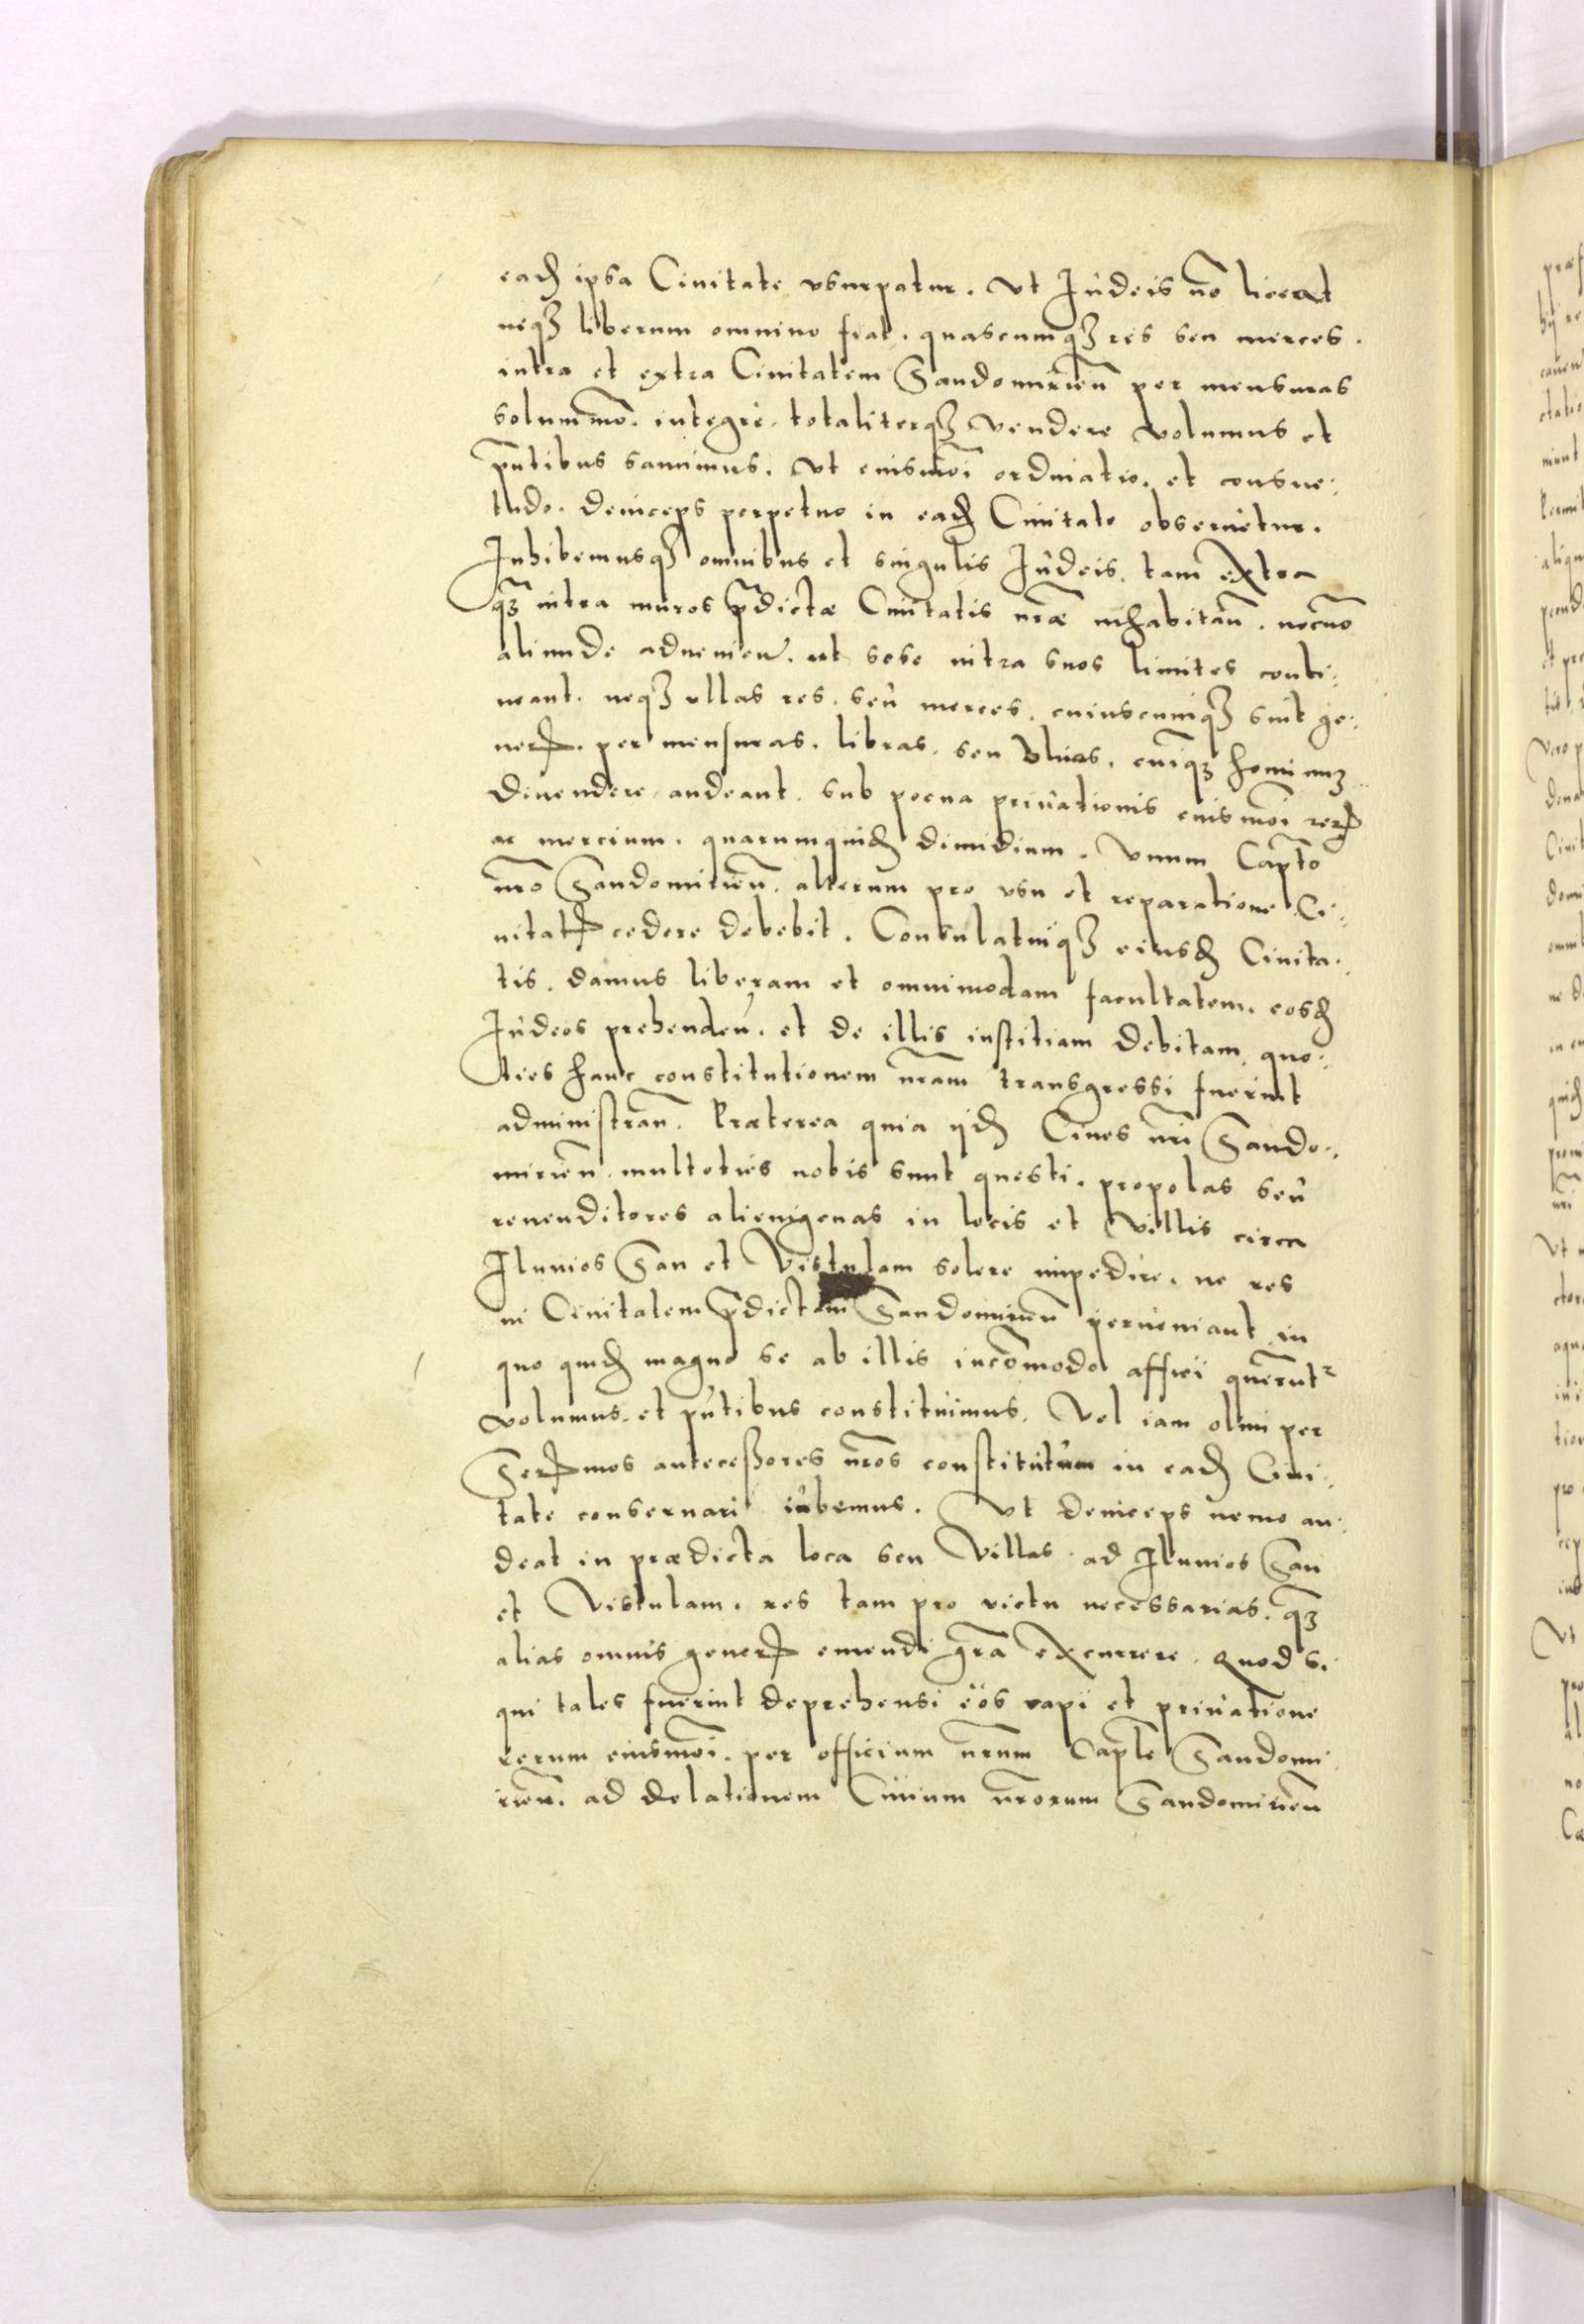 eadē ipsa Ciuitate vsurpatur. vt Iudeis nō liceat
neqʒ liberum omnino fiat. quascumqʒ res seu merces.
intra et extra Ciuitatem Sandomirień per mensuras
solummō. integrè, totaliterqʒ vendere volumus et
p̄ntibus sanximus. vt eiusmōi ordinatio. et consue:
tudo. deinceps perpetuo in eadē Ciuitate obseruetur.
Inhibemusqʒ omnibus et singulis Iudeis, tam extra
qʒ intra muros p̄dictæ Ciuitatis nr̄æ inhabitań. necnō
aliunde aduenień. ut sese intra suos limites conti:
neant. neqʒ ullas res. seu merces. cuiuscumqʒ sint ge:
nerꝭ. per mensuras. libras. seu vlnas. cuiqʒ hominuʒ
diuendere audeant. sub poena priuationis eiusmōi rerꝝ
ac mercium. quarumquidē dimidium. vnum Capt̄o
nr̄o Sandomirień. alterum pro vsu et reparatione Ci:
uitatꝭ cedere debebit. Consulatuiqʒ eiusdē Ciuita:
tis. damus liberam et omnimodam facultatem. eosdē
Iudeos prehendeń. et de illis iustitiam debitam, quo:
ties hanc constitutionem nr̄am transgressi fuerint
administrań. Præterea quia ijdē Ciues nr̄i Sando:
mirień. multoties nobis sunt questi. propolas seu
reuenditores alienigenas in locis et villis circa
Fluuios San et Vistulam solere impedire. ne res
in Ciuitatem p̄dictam Sandomirień perueniant in
quo quidē magno se ab illis incōmodo affici querunt̄
volumus. et p̄ntibus constituimus. Vel iam olim per
Serꝭmos antecessores nr̄os constitutum in eadē Ciui:
tate conseruari iubemus. Vt deinceps nemo au:
deat in prædicta loca seu Villas ad Fluuios San
et Vistulam. res tam pro victu necessarias. qʒ
alias omnis generꝭ emendi gr̄a excurrere. Quod si
qui tales fuerint deprehensi eos capi et priuatione
rerum eiusmōi. per officium nr̄um Capt̄e Sandomi:
rień. ad delationem Ciuium nr̄orum Sandomirień